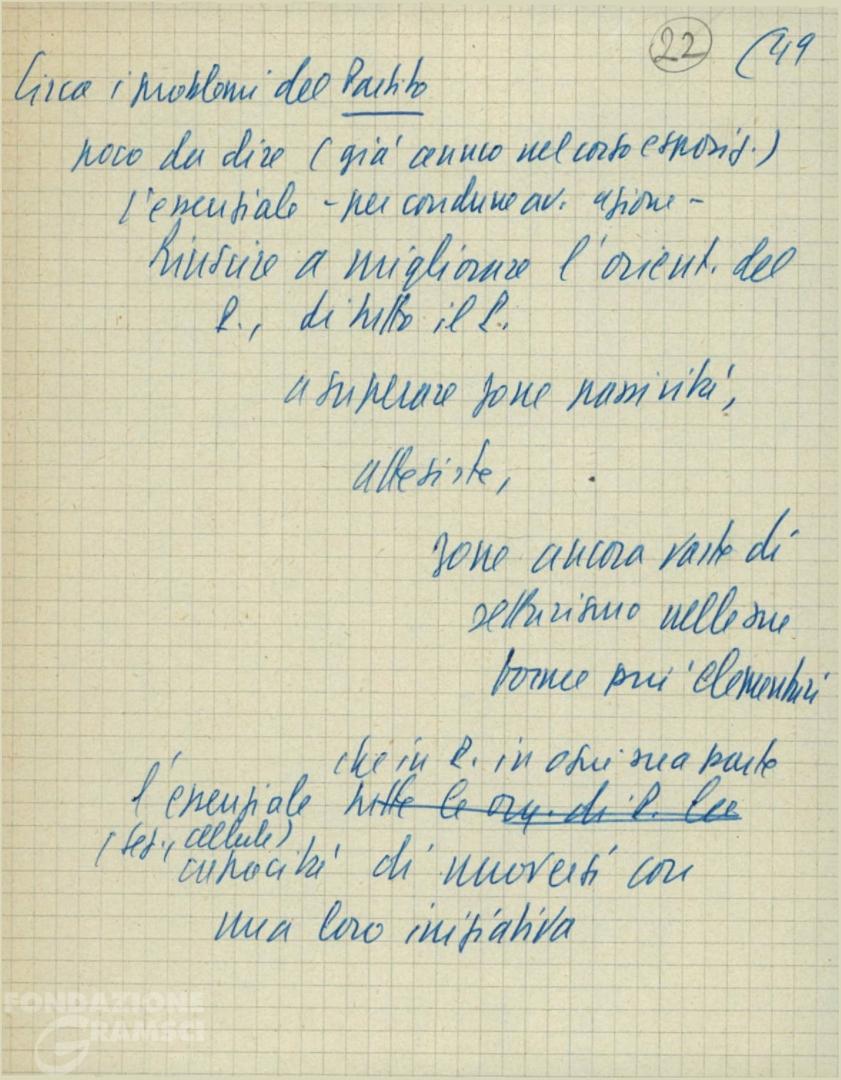 22 (49
Circa i problemi del Partito
poco da dire (già cenno nel corso esposiz.)
l'essenziale - per condurre av. azione -
Riuscire a migliorare l'orient. del
P., di tutto il P.
a superare zone passività,
attesiste,
zone ancora vaste di
settarismo nelle sue
forme più elementari
che in P. in ogni sua parte
l'essenziale tutte le org. di P. la
(sez., cellule)
capacità di muoversi con
una loro iniziativa
FONDAZIONE
GRAMSCI